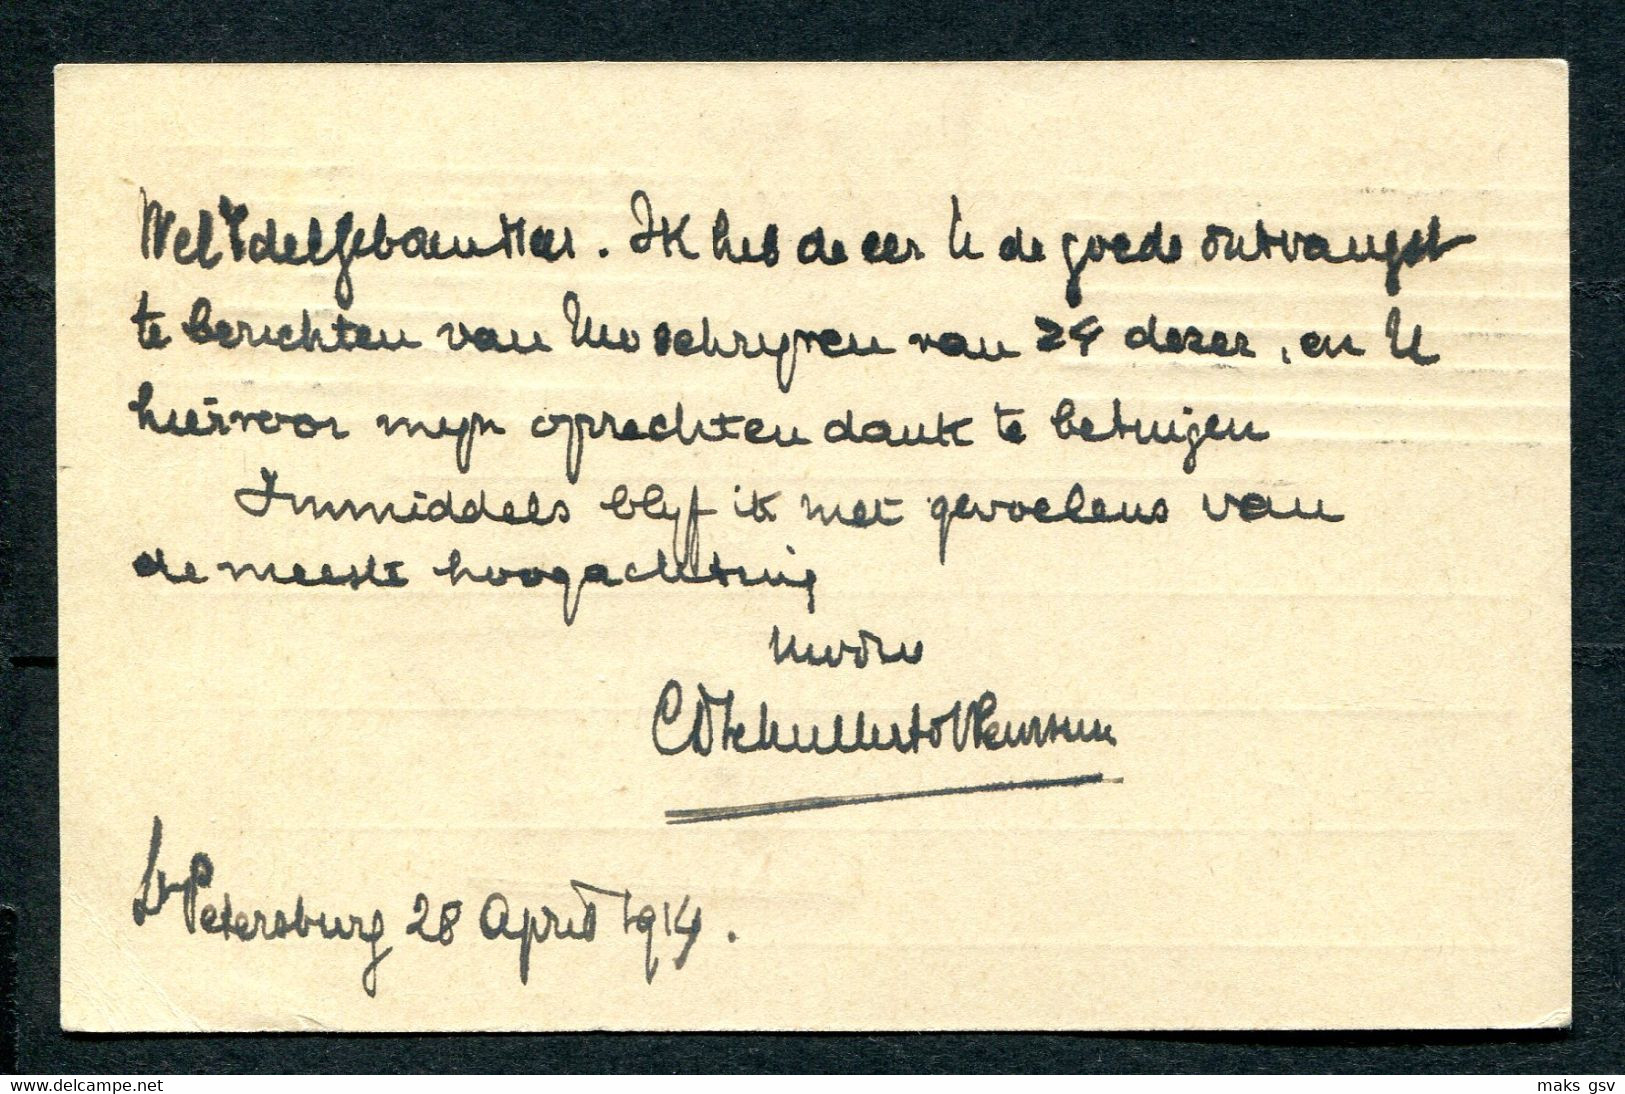 WelEdelGeboren Heer. Ik heb de eer U de goede ontvangst
te berichten van Uw schryven van 24 dezer, en U
hiervoor myn oprechten dank te betuigen
Inmiddels blyf ik met gevoelens van
de meeste hoogachting
Uwdr
St Petersburg 28 April 1914.
www.delcampe.net
maks gsv